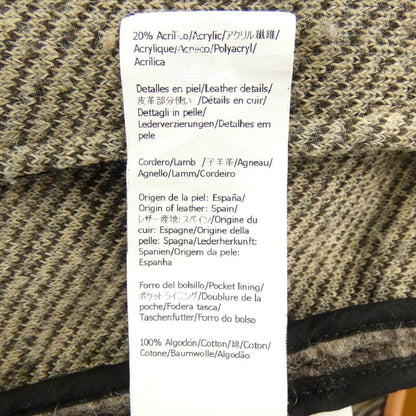 20% Acrílico/Acrylic/アクリル繊維/
Acrylique/Acrilico/Polyacryl/
Acrílica
Detalles en piel/Leather details/
皮革部分使い/Détails en cuir/
Dettagli in pelle/
Lederverzierungen/Detalhes em
pele
Cordero/Lamb /子羊革/Agneau/
Agnello/Lamm/Cordeiro
Origen de la piel: España/
Origin of leather: Spain/
レザー産地: スペイン/Origine du
cuir: Espagne/Origine della
pelle: Spagna/Lederherkunft:
Spanien/Origem da pele:
Espanha
Forro del bolsillo/Pocket lining/
ポケットライニング/Doublure de la
poche/Fodera tasca/
Taschenfutter/Forro do bolso
100% Algodón/Cotton/綿/Coton/
Cotone/Baumwolle/Algodão